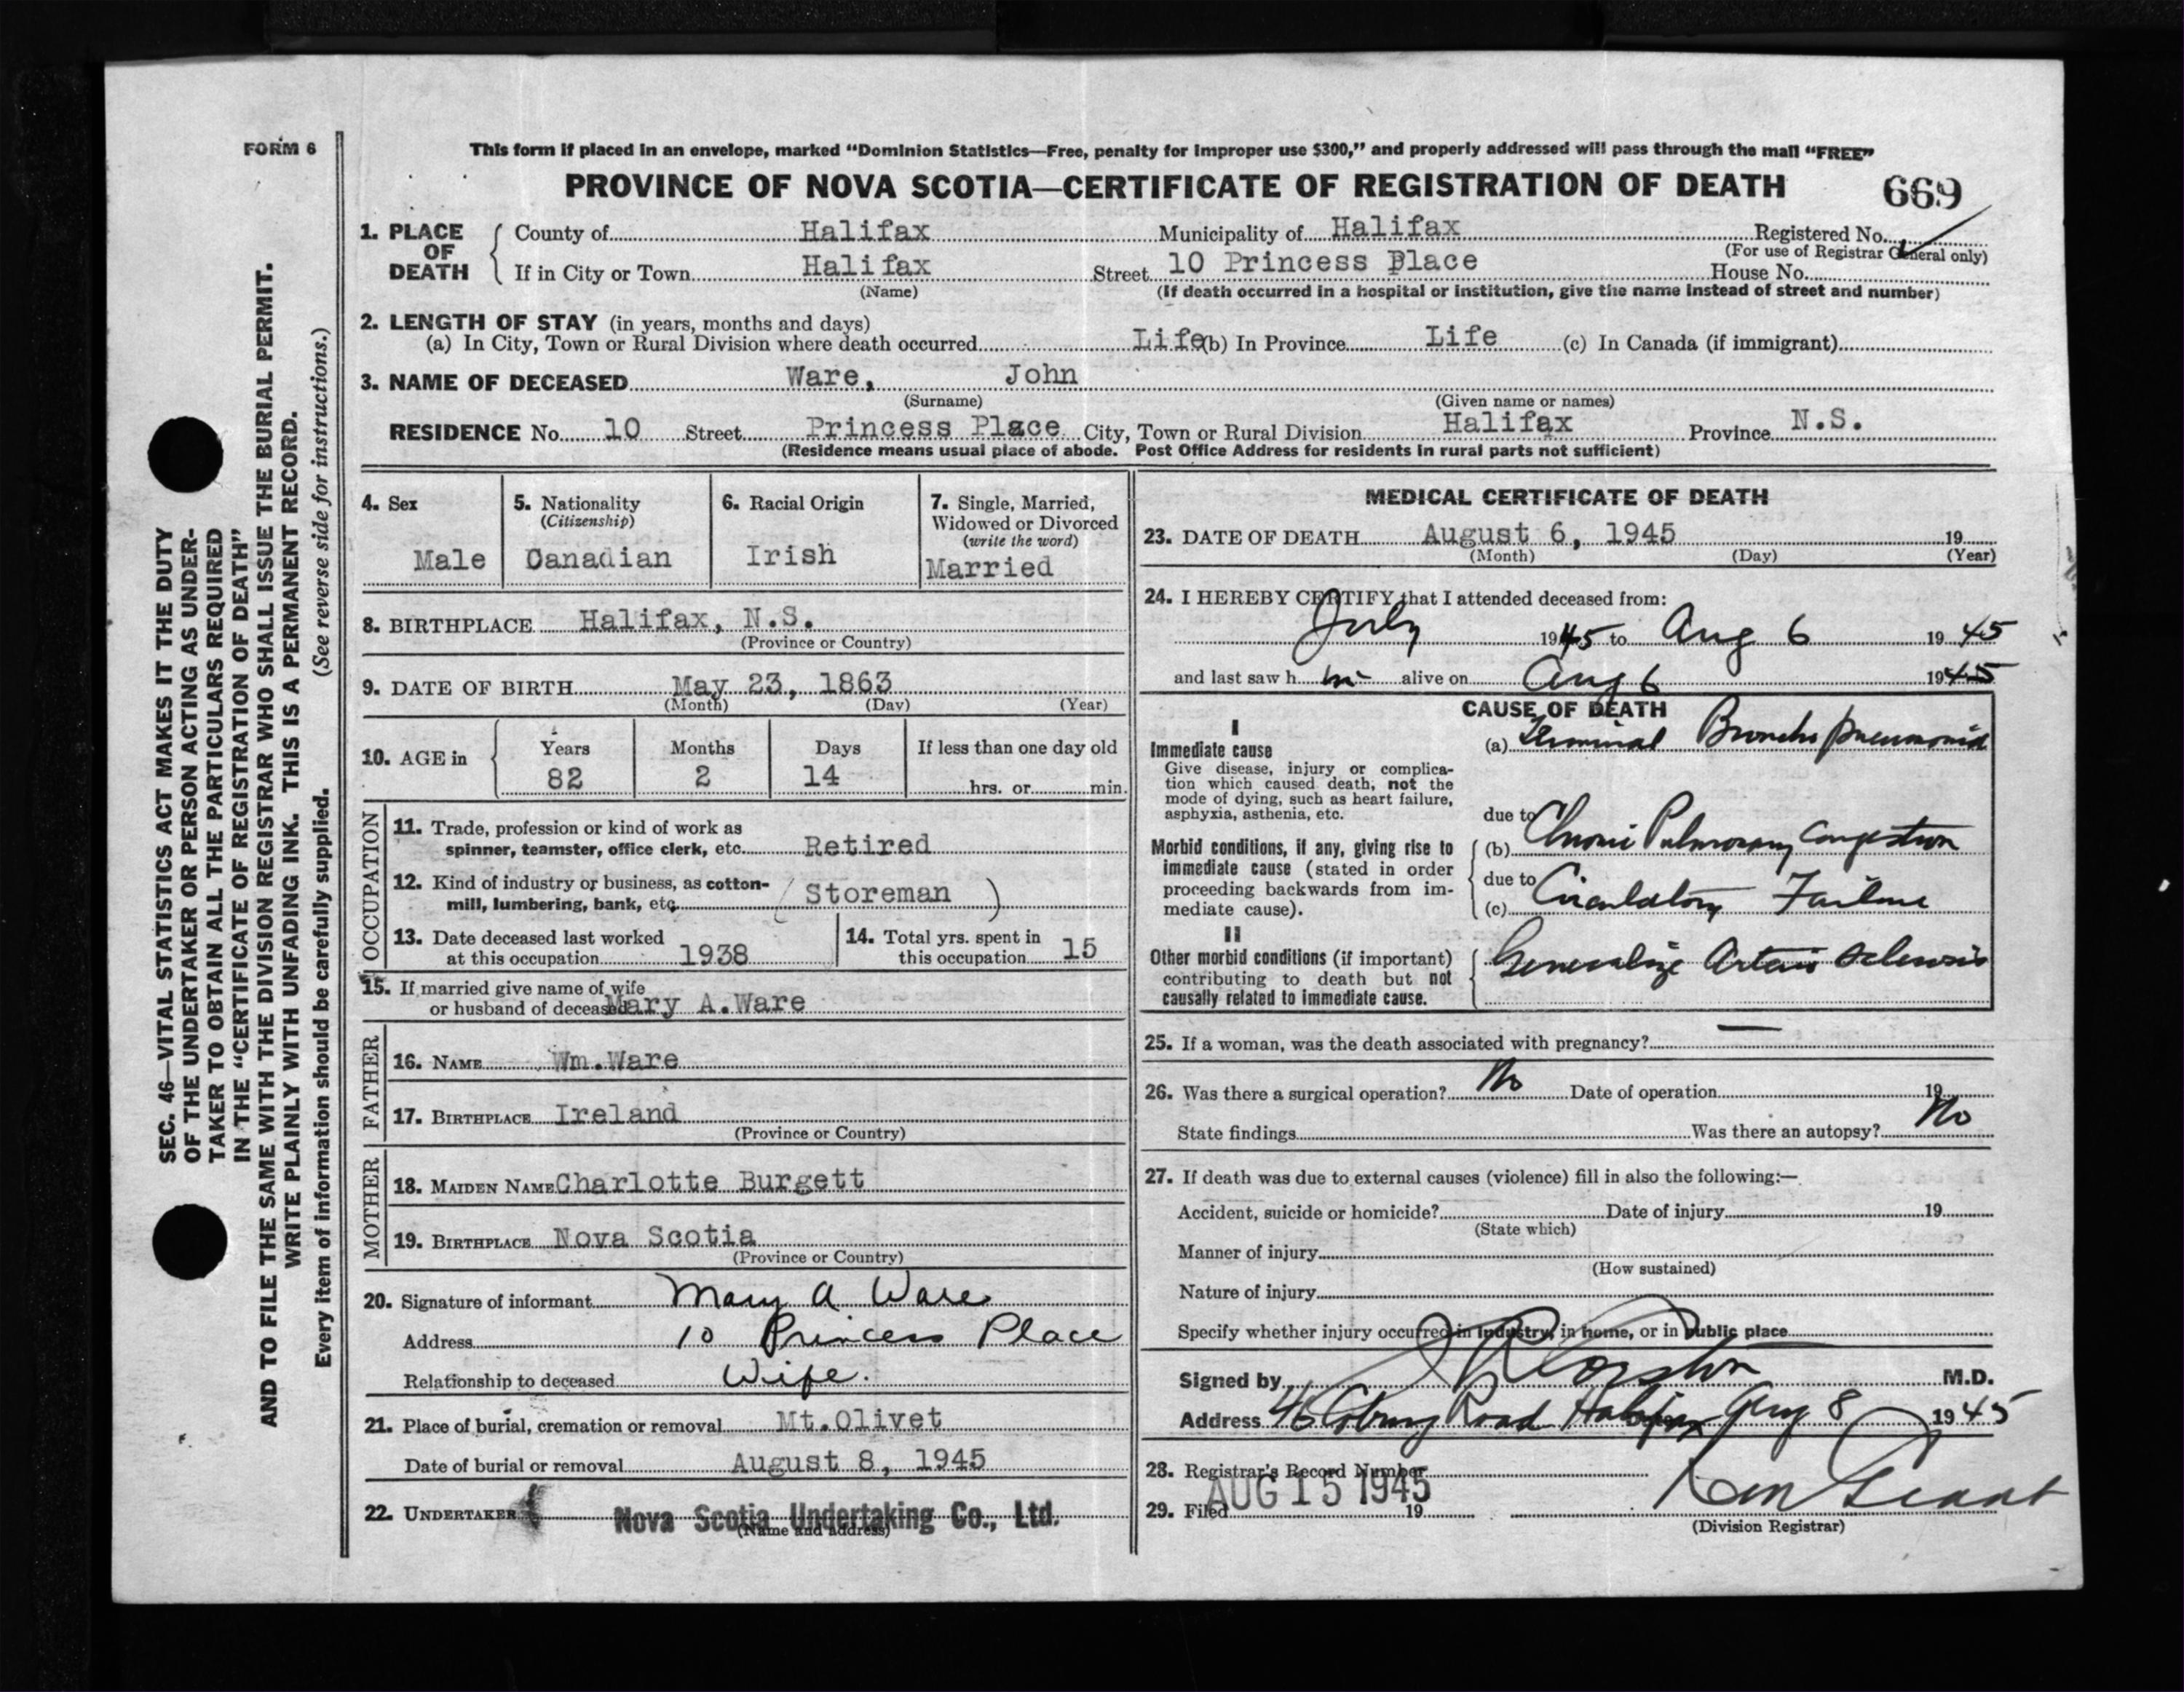 FORM 6
This form if placed in an envelope, marked "Dominion Statistics—Free, penalty for improper use $300," and properly addressed will pass through the mail "FREE"
PROVINCE OF NOVA SCOTIA—CERTIFICATE OF REGISTRATION OF DEATH
669
1. PLACE OF DEATH
County of Halifax Municipality of Halifax Registered No.
(For use of Registrar General only)
If in City or Town Halifax Street 10 Princess Place House No.
(Name) (If death occurred in a hospital or institution, give the name instead of street and number)
2. LENGTH OF STAY (in years, months and days)
(a) In City, Town or Rural Division where death occurred Life (b) In Province Life (c) In Canada (if immigrant)
3. NAME OF DECEASED Ware, John
(Surname) (Given name or names)
RESIDENCE No. 10 Street Princess Place City, Town or Rural Division Halifax Province N.S.
(Residence means usual place of abode. Post Office Address for residents in rural parts not sufficient)
4. Sex
Male
5. Nationality
(Citizenship)
Canadian
6. Racial Origin
Irish
7. Single, Married,
Widowed or Divorced
(write the word)
Married
8. BIRTHPLACE Halifax, N.S.
(Province or Country)
9. DATE OF BIRTH May 23, 1863
(Month) (Day) (Year)
10. AGE in
Years Months Days If less than one day old
82 2 14 hrs. or min.
OCCUPATION
11. Trade, profession or kind of work as
spinner, teamster, office clerk, etc. Retired
12. Kind of industry or business, as cotton-
mill, lumbering, bank, etc. (Storeman)
13. Date deceased last worked
at this occupation 1938
14. Total yrs. spent in
this occupation 15
15. If married give name of wife
or husband of deceased Mary A.Ware
FATHER
16. NAME Wm.Ware
17. BIRTHPLACE Ireland
(Province or Country)
MOTHER
18. MAIDEN NAME Charlotte Burgett
19. BIRTHPLACE Nova Scotia
(Province or Country)
20. Signature of informant Mary A Ware
Address 10 Princess Place
Relationship to deceased Wife.
21. Place of burial, cremation or removal Mt.Olivet
Date of burial or removal August 8, 1945
22. UNDERTAKER Nova Scotia Undertaking Co., Ltd.
(Name and address)
MEDICAL CERTIFICATE OF DEATH
23. DATE OF DEATH August 6, 1945 19
(Month) (Day) (Year)
24. I HEREBY CERTIFY that I attended deceased from:
July 1945 to Aug 6 1945
and last saw h im alive on Aug 6 1945
CAUSE OF DEATH
I
Immediate cause
Give disease, injury or complica-
tion which caused death, not the
mode of dying, such as heart failure,
asphyxia, asthenia, etc.
(a) Terminal Broncho pneumonia
Morbid conditions, if any, giving rise to
immediate cause (stated in order
proceeding backwards from im-
mediate cause).
due to
(b) Chronic Pulmonary Congestion
due to
(c) Circulatory Failure
II
Other morbid conditions (if important)
contributing to death but not
causally related to immediate cause.
Generalize Arterio sclerosis
25. If a woman, was the death associated with pregnancy? —
26. Was there a surgical operation? No Date of operation 19
State findings Was there an autopsy? No
27. If death was due to external causes (violence) fill in also the following:—
Accident, suicide or homicide? Date of injury 19
(State which)
Manner of injury
(How sustained)
Nature of injury
Specify whether injury occurred in industry, in home, or in public place
Signed by M.D.
Address 46 Coburg Road Halifax Aug 8 1945
28. Registrar's Record Number
29. Filed AUG 15 1945 19
(Division Registrar)
SEC. 46—VITAL STATISTICS ACT MAKES IT THE DUTY
OF THE UNDERTAKER OR PERSON ACTING AS UNDER-
TAKER TO OBTAIN ALL THE PARTICULARS REQUIRED
IN THE "CERTIFICATE OF REGISTRATION OF DEATH"
AND TO FILE THE SAME WITH THE DIVISION REGISTRAR WHO SHALL ISSUE THE BURIAL PERMIT.
WRITE PLAINLY WITH UNFADING INK. THIS IS A PERMANENT RECORD.
Every item of information should be carefully supplied. (See reverse side for instructions.)